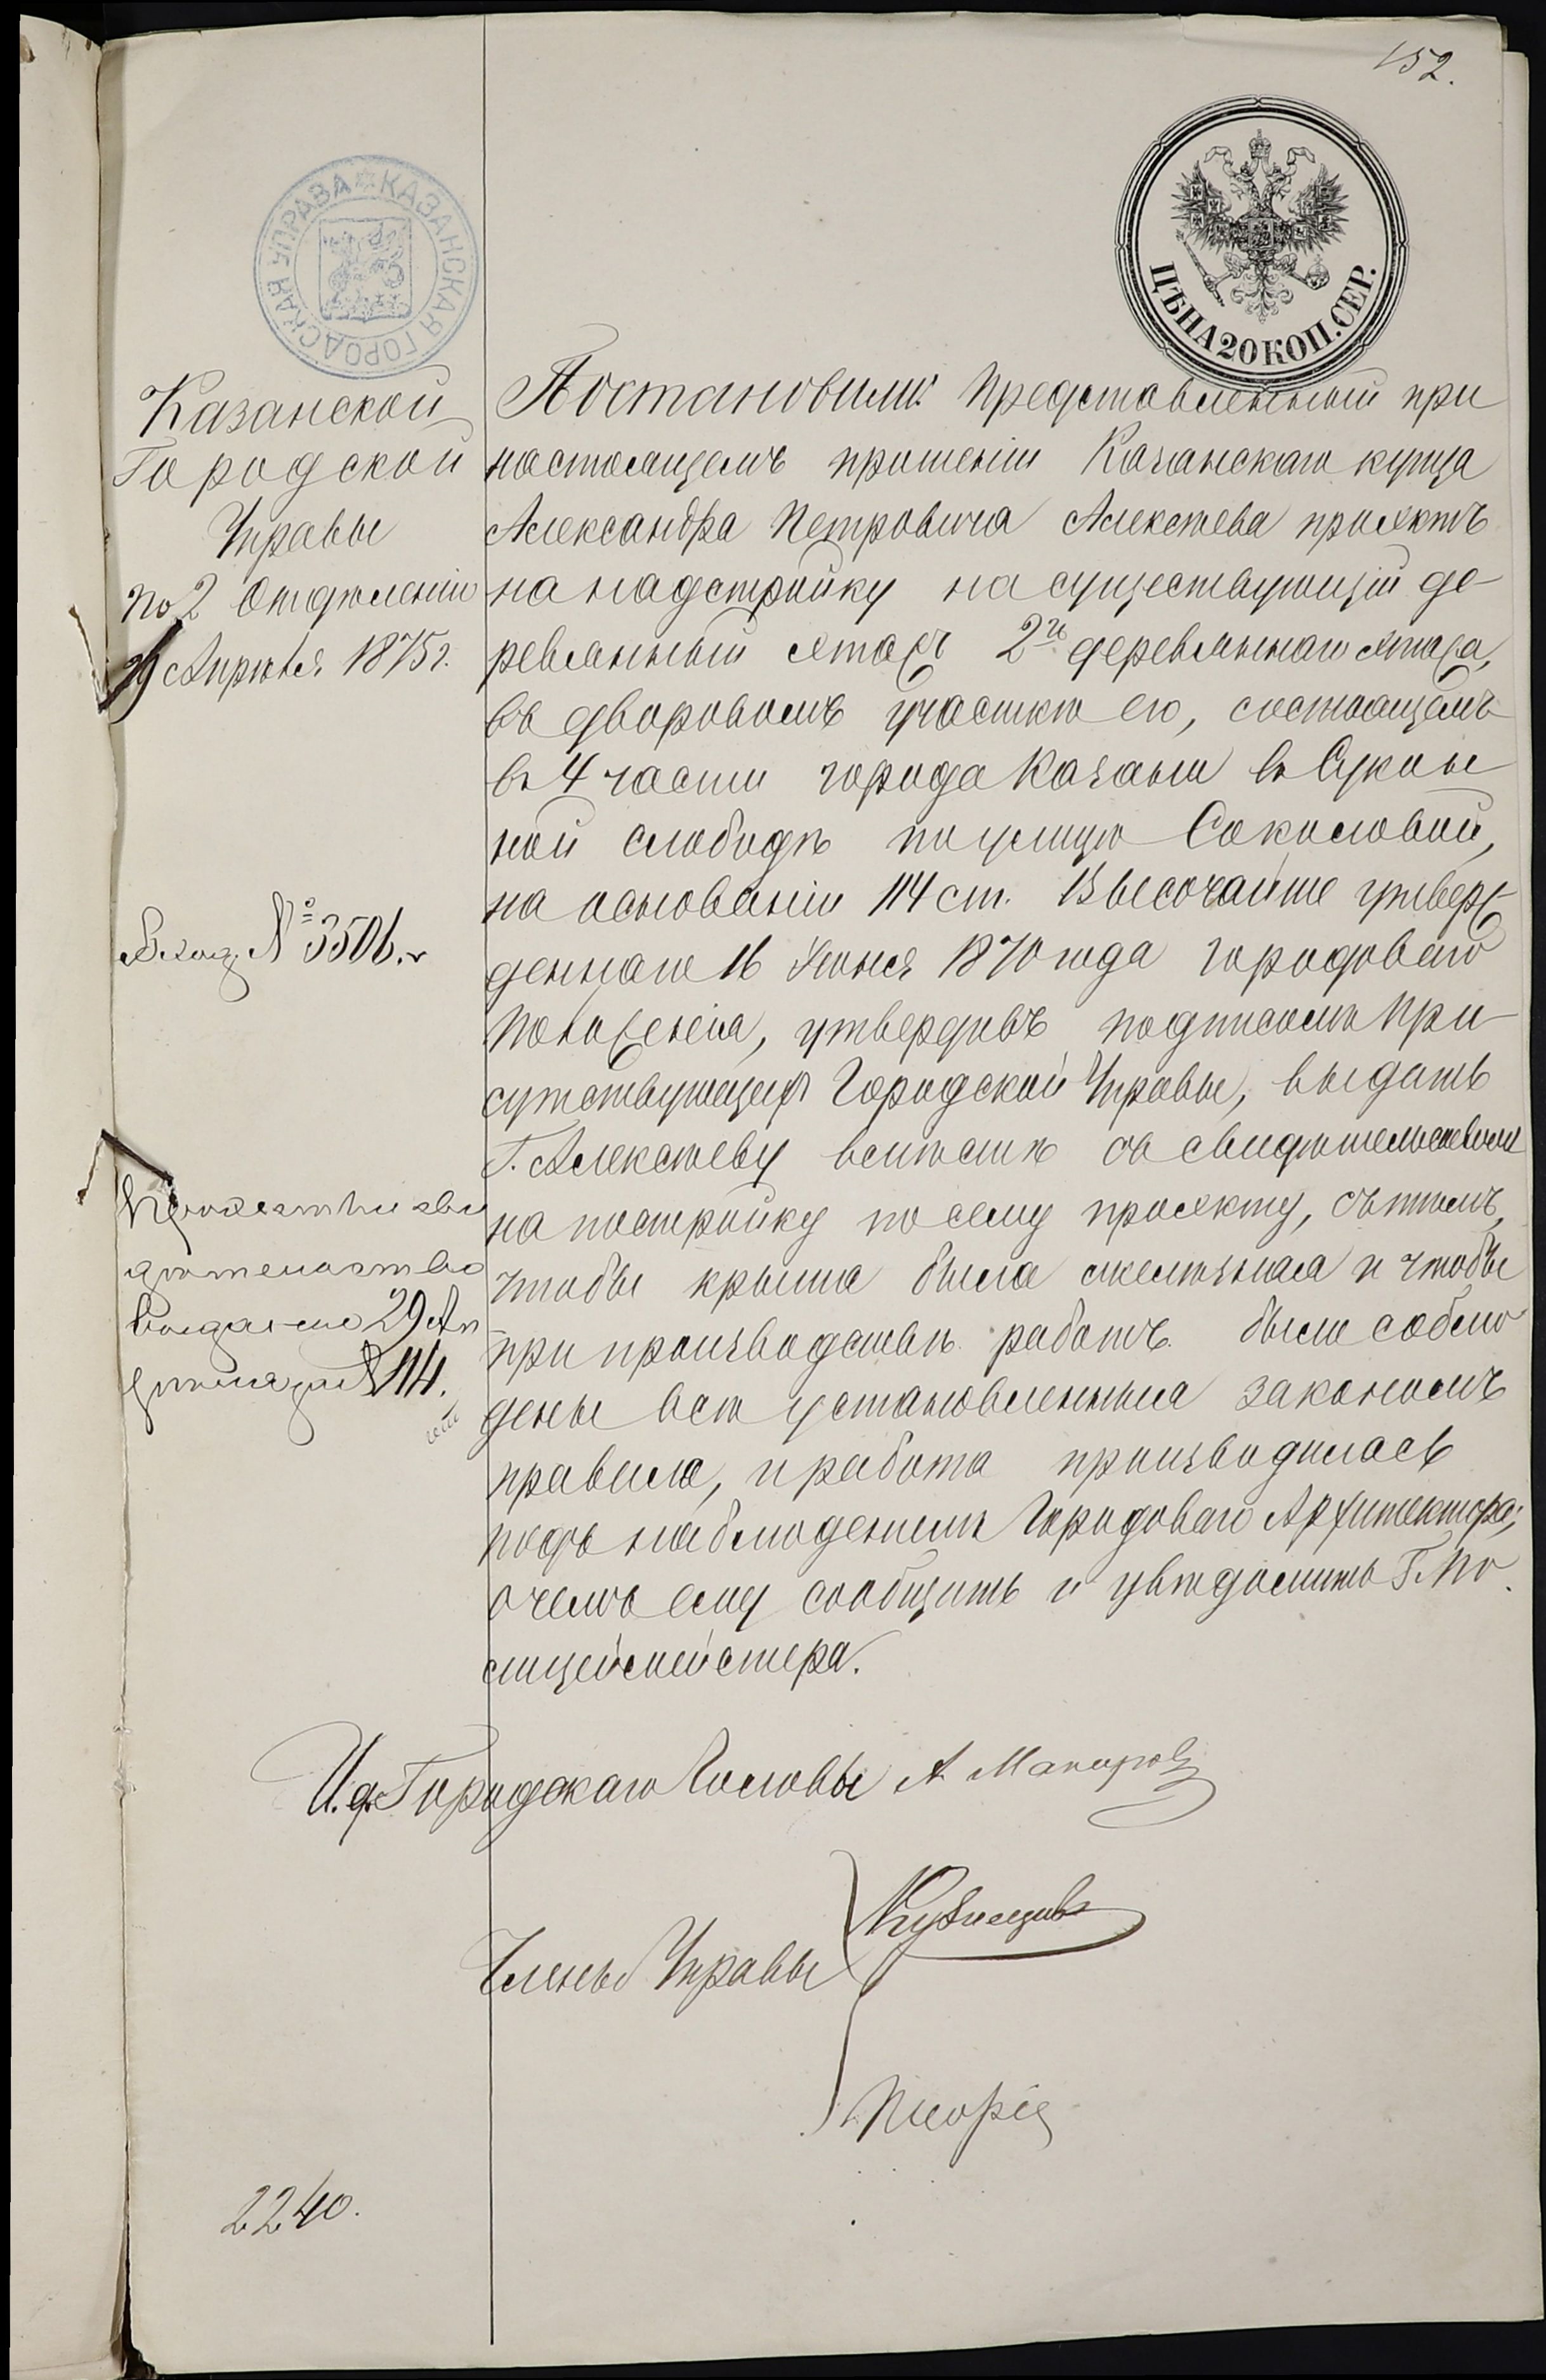 152.
КАЗАНСКАЯ ГОРОДСКАЯ УПРАВА
ЦѢНА 20 КОП. СЕР.
Казанской
Городской
Управы
по 2 Отдѣленію
29 Апрѣля 1875 г.
Вход. № 3506.
Проэктъ и сви
дѣтельство
выдано 29 Ап
рѣля за № 114.
Постановили: Представленный при
настоящемъ прошеніи Казанскаго купца
Александра Петровича Алексѣева проэктъ
на надстройку на существующій де-
ревянный этажъ 2го деревяннаго этажа,
въ дворовомъ участкѣ его, состоящемъ
въ 4 части города Казани въ Сукон
ной слободѣ по улицѣ Соколовой,
на основаніи 114 ст. Высочайше утверж-
деннаго 16 Іюня 1870 года городоваго
Положенія, утвердивъ подписомъ При-
сутствующихъ Городской Управы, выдать
Г. Алексѣеву вмѣстѣ съ свидѣтельствомъ
на постройку по сему проэкту, съ тѣмъ,
чтобы крыша была желѣзная и чтобы
при производствѣ работъ были соблю
дены всѣ установленныя закономъ
правила, и работа производилась
подъ наблюденіемъ Городоваго Архитектора;
о чемъ ему сообщить и увѣдомить Г. По
лицеймейстера.
И. д. Городскаго Головы А.
Члены Управы
Кузнецовъ
2240.